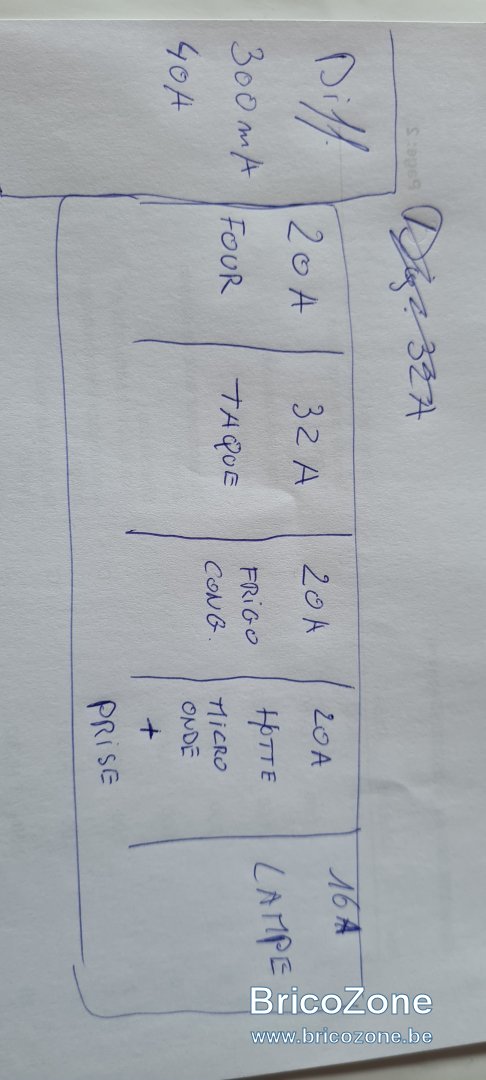 Diff.
300mA
40A
20A
FOUR
32A
TAQUE
20A
FRIGO
CONG.
20A
HOTTE
MICRO
ONDE
+
PRISE
16A
LAMPE
BricoZone
www.bricozone.be